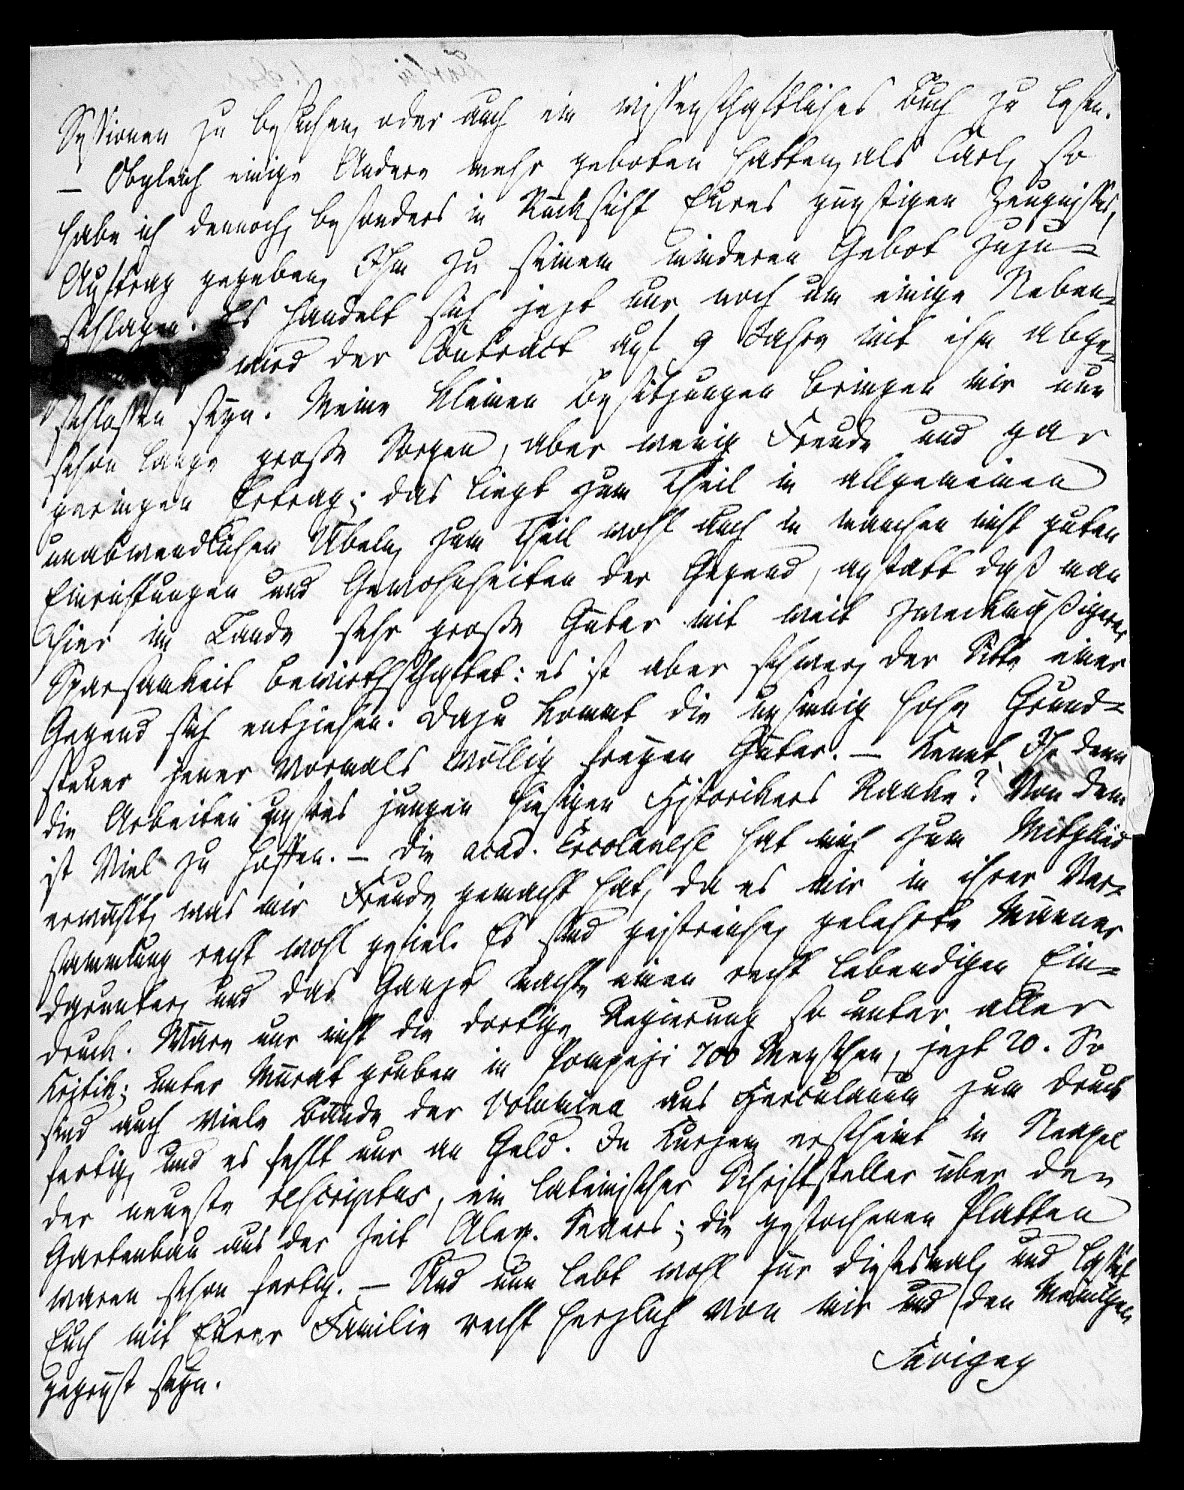 Sessionen zu besuchen, oder auch ein wissenschaftliches Buch zu lesen.
– Obgleich einige Andere mehr geboten hatten, als Carl, so
habe ich dennoch, besonders in Rücksicht Eures günstigen Zeugnisses,
Auftrag gegeben, Ihm zu seinem minderen Gebot zuzu=
schlagen. Es handelt sich jezt nur noch um einige Neben=
wird der Contract auf 9 Jahre mit ihm abge=
schlossen seyn. Meine kleinen Besitzungen bringen mir nun
schon lange große Sorgen, aber wenig Freude und gar
geringen Ertrag; das liegt zum Theil in allgemeinen
unabwendlichen Übeln, zum Theil wohl auch in manchen nicht guten
Einrichtungen und Gewohnheiten der Gegend, anstatt daß man
hier im Lande sehr große Güter mit weit zweckmäßigerer
Sparsamkeit bewirthschaftet: es ist aber schwer, der Sitte einer
Gegend sich entziehen. Dazu kommt die unsinnig hohe Grund=
steuer jener vormals völlig freyen Güter. – Kennt Ihr denn
die Arbeiten unsres jungen hiesigen Historikers Ranke? Von dem
ist Viel zu hoffen. – Die acad. Ercolanese hat mich zum Mitglied
erwählt, was mir Freude gemacht hat, da es mir in ihrer Ver=
sammlung recht wohl gefiel. Es sind geistreiche, gelehrte Männer
darunter, und das Ganze macht einen recht lebendigen Ein=
druck. Wäre nur nicht die dortige Regierung so unter aller
Kritik; unter Murat gruben in Pompeji 700 Menschen, jezt 20. So
sind auch viele Bände der Volumina aus Herculanum zum Druck
fertig, und es fehlt nur an Geld. In Kurzem erscheint in Neapel
der neueste rescriptus, ein lateinischer Schriftsteller über den
Gartenbau aus der Zeit Alex. Severs; die gestochenen Platten
waren schon fertig. – Und nun lebt wohl für diesesmal, und laßt
Euch mit Eurer Familie recht herzlich von mir und den Meinigen
gegrüst seyn.
Savigny